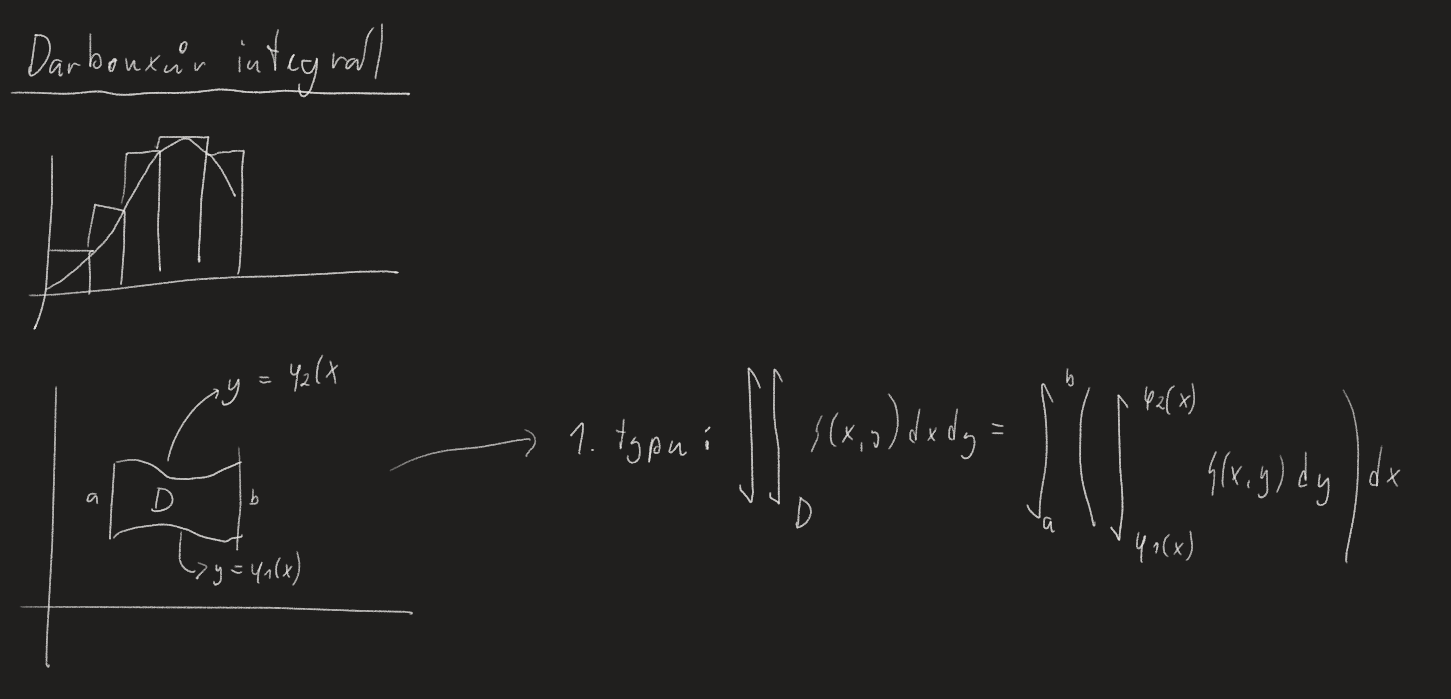 Darbouxův integrál
y = φ₂(x
a D b
y = φ₁(x)
1. typu : ∬_D f(x,y) dx dy = ∫_a^b ( ∫_{φ₁(x)}^{φ₂(x)} f(x,y) dy ) dx